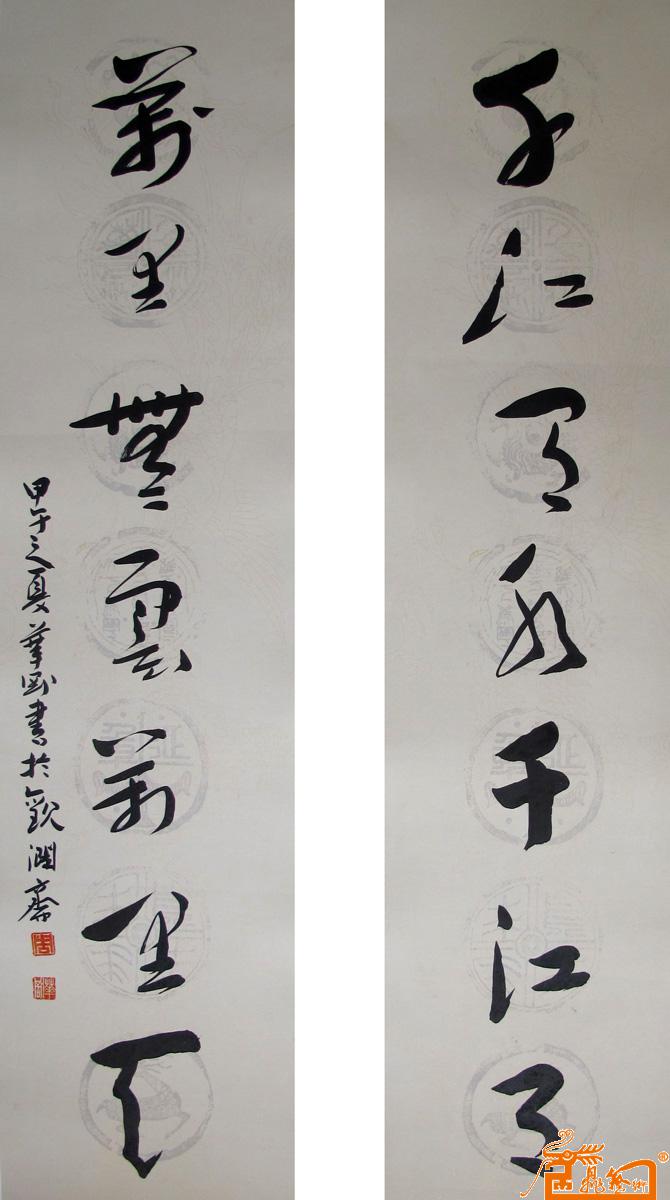 千江有水千江月
萬里無雲萬里天
甲午之夏華國書於觀潤齋